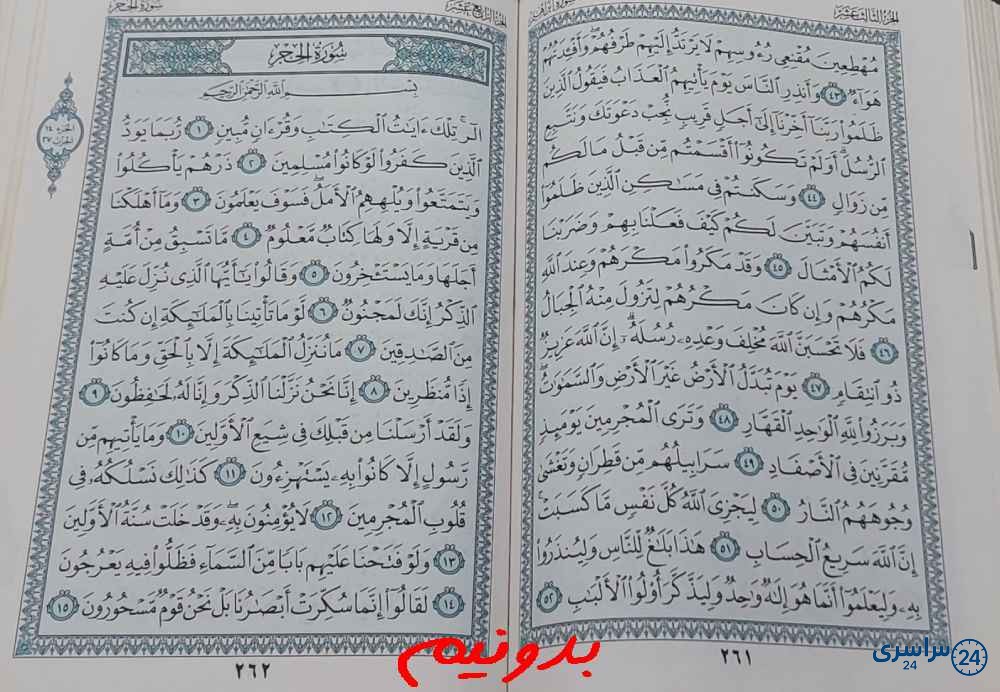 الجزء الثالث عشر
مُهْطِعِينَ مُقْنِعِي رُءُوسِهِمْ لَا يَرْتَدُّ إِلَيْهِمْ طَرْفُهُمْ ۖ وَأَفْـِٔدَتُهُمْ
هَوَآءٌ ٤٣ وَأَنذِرِ ٱلنَّاسَ يَوْمَ يَأْتِيهِمُ ٱلْعَذَابُ فَيَقُولُ ٱلَّذِينَ
ظَلَمُوا۟ رَبَّنَآ أَخِّرْنَآ إِلَىٰٓ أَجَلٍ قَرِيبٍ نُّجِبْ دَعْوَتَكَ وَنَتَّبِعِ
ٱلرُّسُلَ ۗ أَوَلَمْ تَكُونُوٓا۟ أَقْسَمْتُم مِّن قَبْلُ مَا لَكُم
مِّن زَوَالٍ ٤٤ وَسَكَنتُمْ فِي مَسَٰكِنِ ٱلَّذِينَ ظَلَمُوٓا۟
أَنفُسَهُمْ وَتَبَيَّنَ لَكُمْ كَيْفَ فَعَلْنَا بِهِمْ وَضَرَبْنَا
لَكُمُ ٱلْأَمْثَالَ ٤٥ وَقَدْ مَكَرُوا۟ مَكْرَهُمْ وَعِندَ ٱللَّهِ
مَكْرُهُمْ وَإِن كَانَ مَكْرُهُمْ لِتَزُولَ مِنْهُ ٱلْجِبَالُ
٤٦ فَلَا تَحْسَبَنَّ ٱللَّهَ مُخْلِفَ وَعْدِهِۦ رُسُلَهُۥٓ ۗ إِنَّ ٱللَّهَ عَزِيزٌ
ذُو ٱنتِقَامٍ ٤٧ يَوْمَ تُبَدَّلُ ٱلْأَرْضُ غَيْرَ ٱلْأَرْضِ وَٱلسَّمَٰوَٰتُ ۖ
وَبَرَزُوا۟ لِلَّهِ ٱلْوَٰحِدِ ٱلْقَهَّارِ ٤٨ وَتَرَى ٱلْمُجْرِمِينَ يَوْمَئِذٍ
مُّقَرَّنِينَ فِي ٱلْأَصْفَادِ ٤٩ سَرَابِيلُهُم مِّن قَطِرَانٍ وَتَغْشَىٰ
وُجُوهَهُمُ ٱلنَّارُ ٥٠ لِيَجْزِيَ ٱللَّهُ كُلَّ نَفْسٍ مَّا كَسَبَتْ ۚ
إِنَّ ٱللَّهَ سَرِيعُ ٱلْحِسَابِ ٥١ هَٰذَا بَلَٰغٌ لِّلنَّاسِ وَلِيُنذَرُوا۟
بِهِۦ وَلِيَعْلَمُوٓا۟ أَنَّمَا هُوَ إِلَٰهٌ وَٰحِدٌ وَلِيَذَّكَّرَ أُو۟لُوا۟ ٱلْأَلْبَٰبِ ٥٢
٢٦١
الجزء الرابع عشر
سورة الحجر
سُورَةُ الحِجْرِ
بِسْمِ ٱللَّهِ ٱلرَّحْمَٰنِ ٱلرَّحِيمِ
الجزء ١٤
الحزب ٢٧
الٓر ۚ تِلْكَ ءَايَٰتُ ٱلْكِتَٰبِ وَقُرْءَانٍ مُّبِينٍ ١ رُّبَمَا يَوَدُّ
ٱلَّذِينَ كَفَرُوا۟ لَوْ كَانُوا۟ مُسْلِمِينَ ٢ ذَرْهُمْ يَأْكُلُوا۟
وَيَتَمَتَّعُوا۟ وَيُلْهِهِمُ ٱلْأَمَلُ ۖ فَسَوْفَ يَعْلَمُونَ ٣ وَمَآ أَهْلَكْنَا
مِن قَرْيَةٍ إِلَّا وَلَهَا كِتَابٌ مَّعْلُومٌ ٤ مَّا تَسْبِقُ مِنْ أُمَّةٍ
أَجَلَهَا وَمَا يَسْتَـْٔخِرُونَ ٥ وَقَالُوا۟ يَٰٓأَيُّهَا ٱلَّذِي نُزِّلَ عَلَيْهِ
ٱلذِّكْرُ إِنَّكَ لَمَجْنُونٌ ٦ لَّوْ مَا تَأْتِينَا بِٱلْمَلَٰٓئِكَةِ إِن كُنتَ
مِنَ ٱلصَّٰدِقِينَ ٧ مَا نُنَزِّلُ ٱلْمَلَٰٓئِكَةَ إِلَّا بِٱلْحَقِّ وَمَا كَانُوٓا۟
إِذًا مُّنظَرِينَ ٨ إِنَّا نَحْنُ نَزَّلْنَا ٱلذِّكْرَ وَإِنَّا لَهُۥ لَحَٰفِظُونَ ٩
وَلَقَدْ أَرْسَلْنَا مِن قَبْلِكَ فِي شِيَعِ ٱلْأَوَّلِينَ ١٠ وَمَا يَأْتِيهِم مِّن
رَّسُولٍ إِلَّا كَانُوا۟ بِهِۦ يَسْتَهْزِءُونَ ١١ كَذَٰلِكَ نَسْلُكُهُۥ فِي
قُلُوبِ ٱلْمُجْرِمِينَ ١٢ لَا يُؤْمِنُونَ بِهِۦ ۖ وَقَدْ خَلَتْ سُنَّةُ ٱلْأَوَّلِينَ
١٣ وَلَوْ فَتَحْنَا عَلَيْهِم بَابًا مِّنَ ٱلسَّمَآءِ فَظَلُّوا۟ فِيهِ يَعْرُجُونَ
١٤ لَقَالُوٓا۟ إِنَّمَا سُكِّرَتْ أَبْصَٰرُنَا بَلْ نَحْنُ قَوْمٌ مَّسْحُورُونَ ١٥
٢٦٢
بدونیم
سراسری 24
24